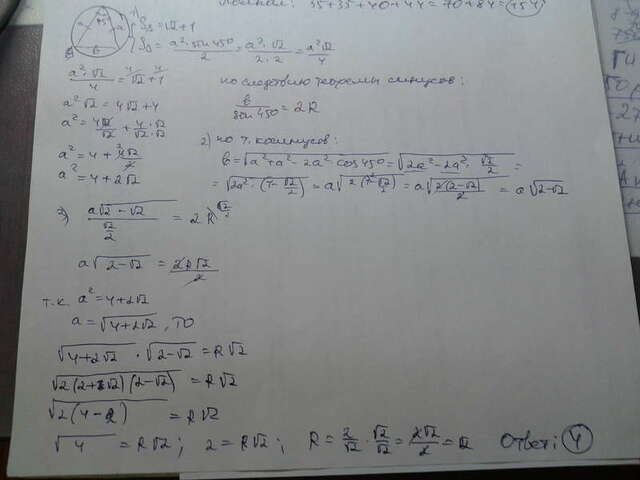 35+35+40+44=70+84=154
1) S_Δ=√2+1
S_Δ=a²·sin450/2=a²·√2/2·2=a²√2/4
a²·√2/4=√2+1
a²√2=4√2+4
a²=4√2/√2+4·√2/√2·√2
a²=4+4√2/2
a²=4+2√2
по следствию теоремы синусов:
b/sin450=2R
2) по т. косинусов:
b=√a²+a²-2a²·cos450=√2a²-2a²·√2/2=
=√2a²·(1-√2/2)=a√2(1-√2/2)=a√2(2-√2)/2=a√2-√2
3) a√2-√2/√2/2=2R
a√2-√2=2R√2/2
т.к. a²=4+2√2
a=√4+2√2, то
√4+2√2·√2-√2=R√2
√2(2+√2)(2-√2)=R√2
√2(4-2)=R√2
√4=R√2; 2=R√2; R=2/√2·√2/√2=2√2/2=√2 Ответ: 4